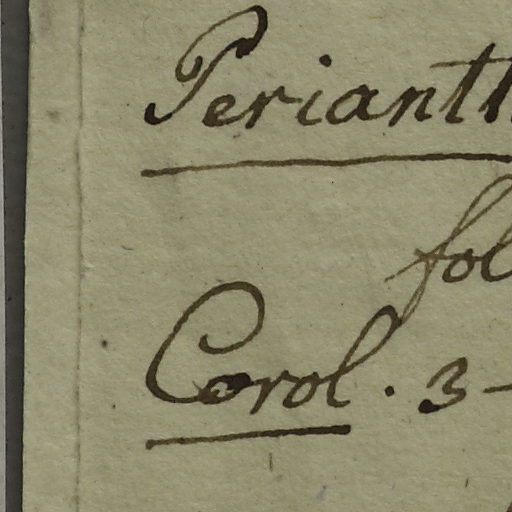 Perianth
fol
Corol. 3-